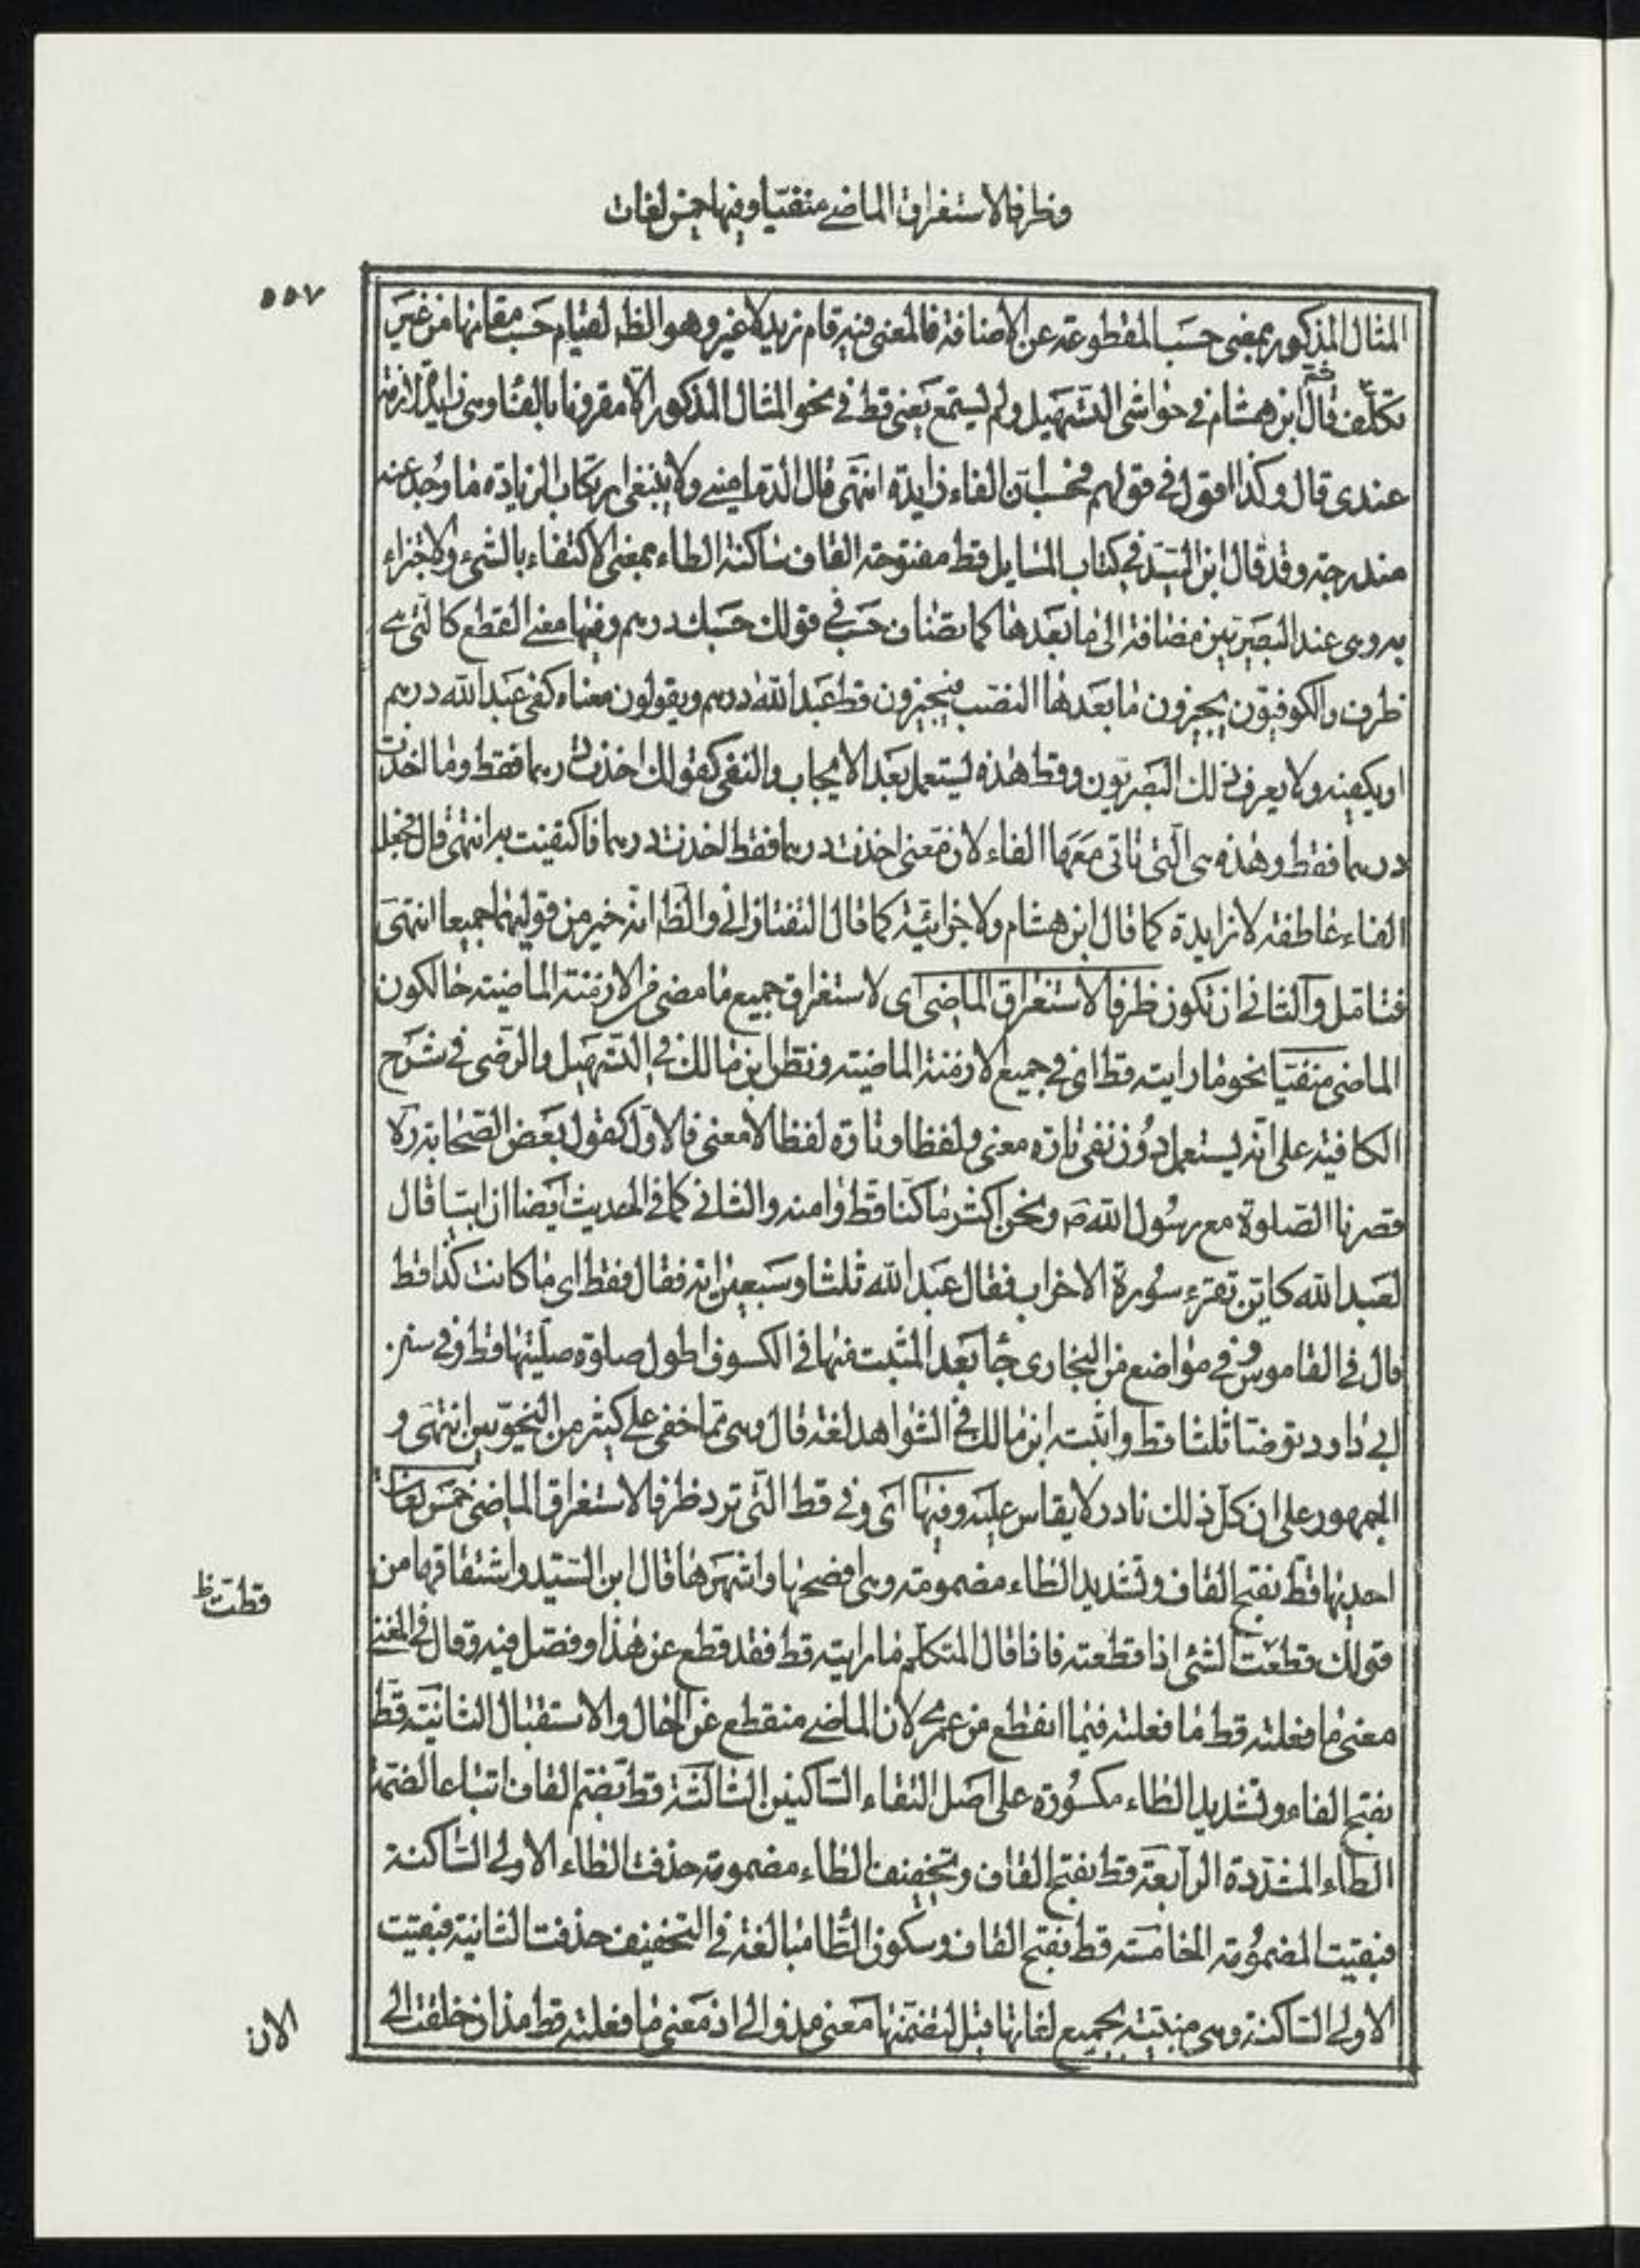 وظرفا لاستغراق الماضے منفيّا وفيها خمس لغات
٥٥٧
المثال المذكور بمعنى حسب المقطوعة عن الاضافة فالمعنى فيه قام زيد لا غير وهو الظ لقيام حسب مقامها من غير
تكلّف ثمّ قال ابن هشام في حواشى التسهيل ولم يستمع يعنى قط في نحو المثال المذكور الّا مقرونا بالفاء وهى زايدة لازمة
عندى قال وكذا اقول في قولهم فحسب انّ الفاء زايدة انتهى قال الدمامينے ولا ينبغى ارتكاب الزيادة ما وجد عنه
مندرجة وقد قال ابن السيّد في كتاب المسايل قط مفتوحة القاف ساكنة الطاء بمعنى الاكتفاء بالشئ والاجتزاء
به وهى عند البصريّين مضافة الى ما بعدها كما تضاف حسب في قولك حسبك درهم وفيها معنے القطع كالتى هے
ظرف والكوفيّون يجيزون ما بعدها النصب فيجيزون قط عبد الله درهم ويقولون معناه كفى عبد الله درهم
او يكفيه ولا يعرف ذلك البصريون وقط هذه يستعمل بعد الايجاب والنفى كقولك اخذت درهما فقط وما اخذت
درهما فقط وهذه هى الّتى تاتى معها الفاء لان معنى اخذت درهما فقط اخذت درهما فاكتفيت به انتهى قال فجعل
الفاء عاطفة لا زايدة كما قال ابن هشام ولا جزائيّة كما قال التفتازانے والظ انه خير من قوليهما جميعا انتهى
فتامّل والثانے ان تكون ظرفا لاستغراق الماضى اى لاستغراق جميع ما مضى من الازمنة الماضية حالكون
الماضى منفيّا نحو ما رايته قط اى في جميع الازمنة الماضية ونصّ ابن مالك في التسهيل والرضى في شرح
الكافية على انّه يستعمل دون نفى تارة معنى ولفظا وتارة لفظا لا معنى فالاوّل كقول بعض الصحابة رض
قصرنا الصلوة مع رسول الله ص ونحن اكثر ما كنّا قط وامنه والثانے كما في الحديث ايضا ان ابيّا قال
لعبد الله كاين تقرء سورة الاحزاب فقال عبد الله ثلثا وسبعين اية فقال فقط اى ما كانت كذا قط
قال في القاموس وفي مواضع من البخارى جاء بعد المثبت منها في الكسوف اطول صلوة صلّيتها قط وفي سنن
ابى داود توضّا ثلثا قط واثبته ابن مالك في الشواهد لغة قال وهى ممّا خفى على كثير من النحويّين انتهى و
الجمهور على ان كلّ ذلك نادر لا يقاس عليه وفيها اى وفى قط الّتى ترد ظرفا لاستغراق الماضى خمس لغات
احديها قطّ بفتح القاف وتشديد الطاء مضمومة وهى افصحها واشهرها قال ابن السيّد واشتقاقها من
قولك قطعت الشئ اذا قطعته فاذا قال المتكلّم ما رايته قط فقد قطع عن هذا وفصل فيه وقال في المغنے
قططت ظ
معنى ما فعلته قط ما فعلته فيما انقطع من عمرى لان الماضے منقطع عن الحال والاستقبال الثانيّة قطّ
بفتح القاف وتشديد الطاء مكسورة على اصل التقاء الساكنين الثالثة قط بضمّ القاف اتباعا لضمة
الطاء المشدّدة الرابعة قط بفتح القاف وتخفيف الطاء مضمومة حذفت الطاء الاولے الساكنة
فبقيت المضمومة الخامسة قط بفتح القاف وسكون الطّاء مبالغة في التخفيف حذفت الثانية فبقيت
الاولے الساكنة وهى مبنيّة بجميع لغاتها قبل لتضمّنها معنى مذ والے اذ معنى ما فعلته قط مذ ان خلقت الے
الان